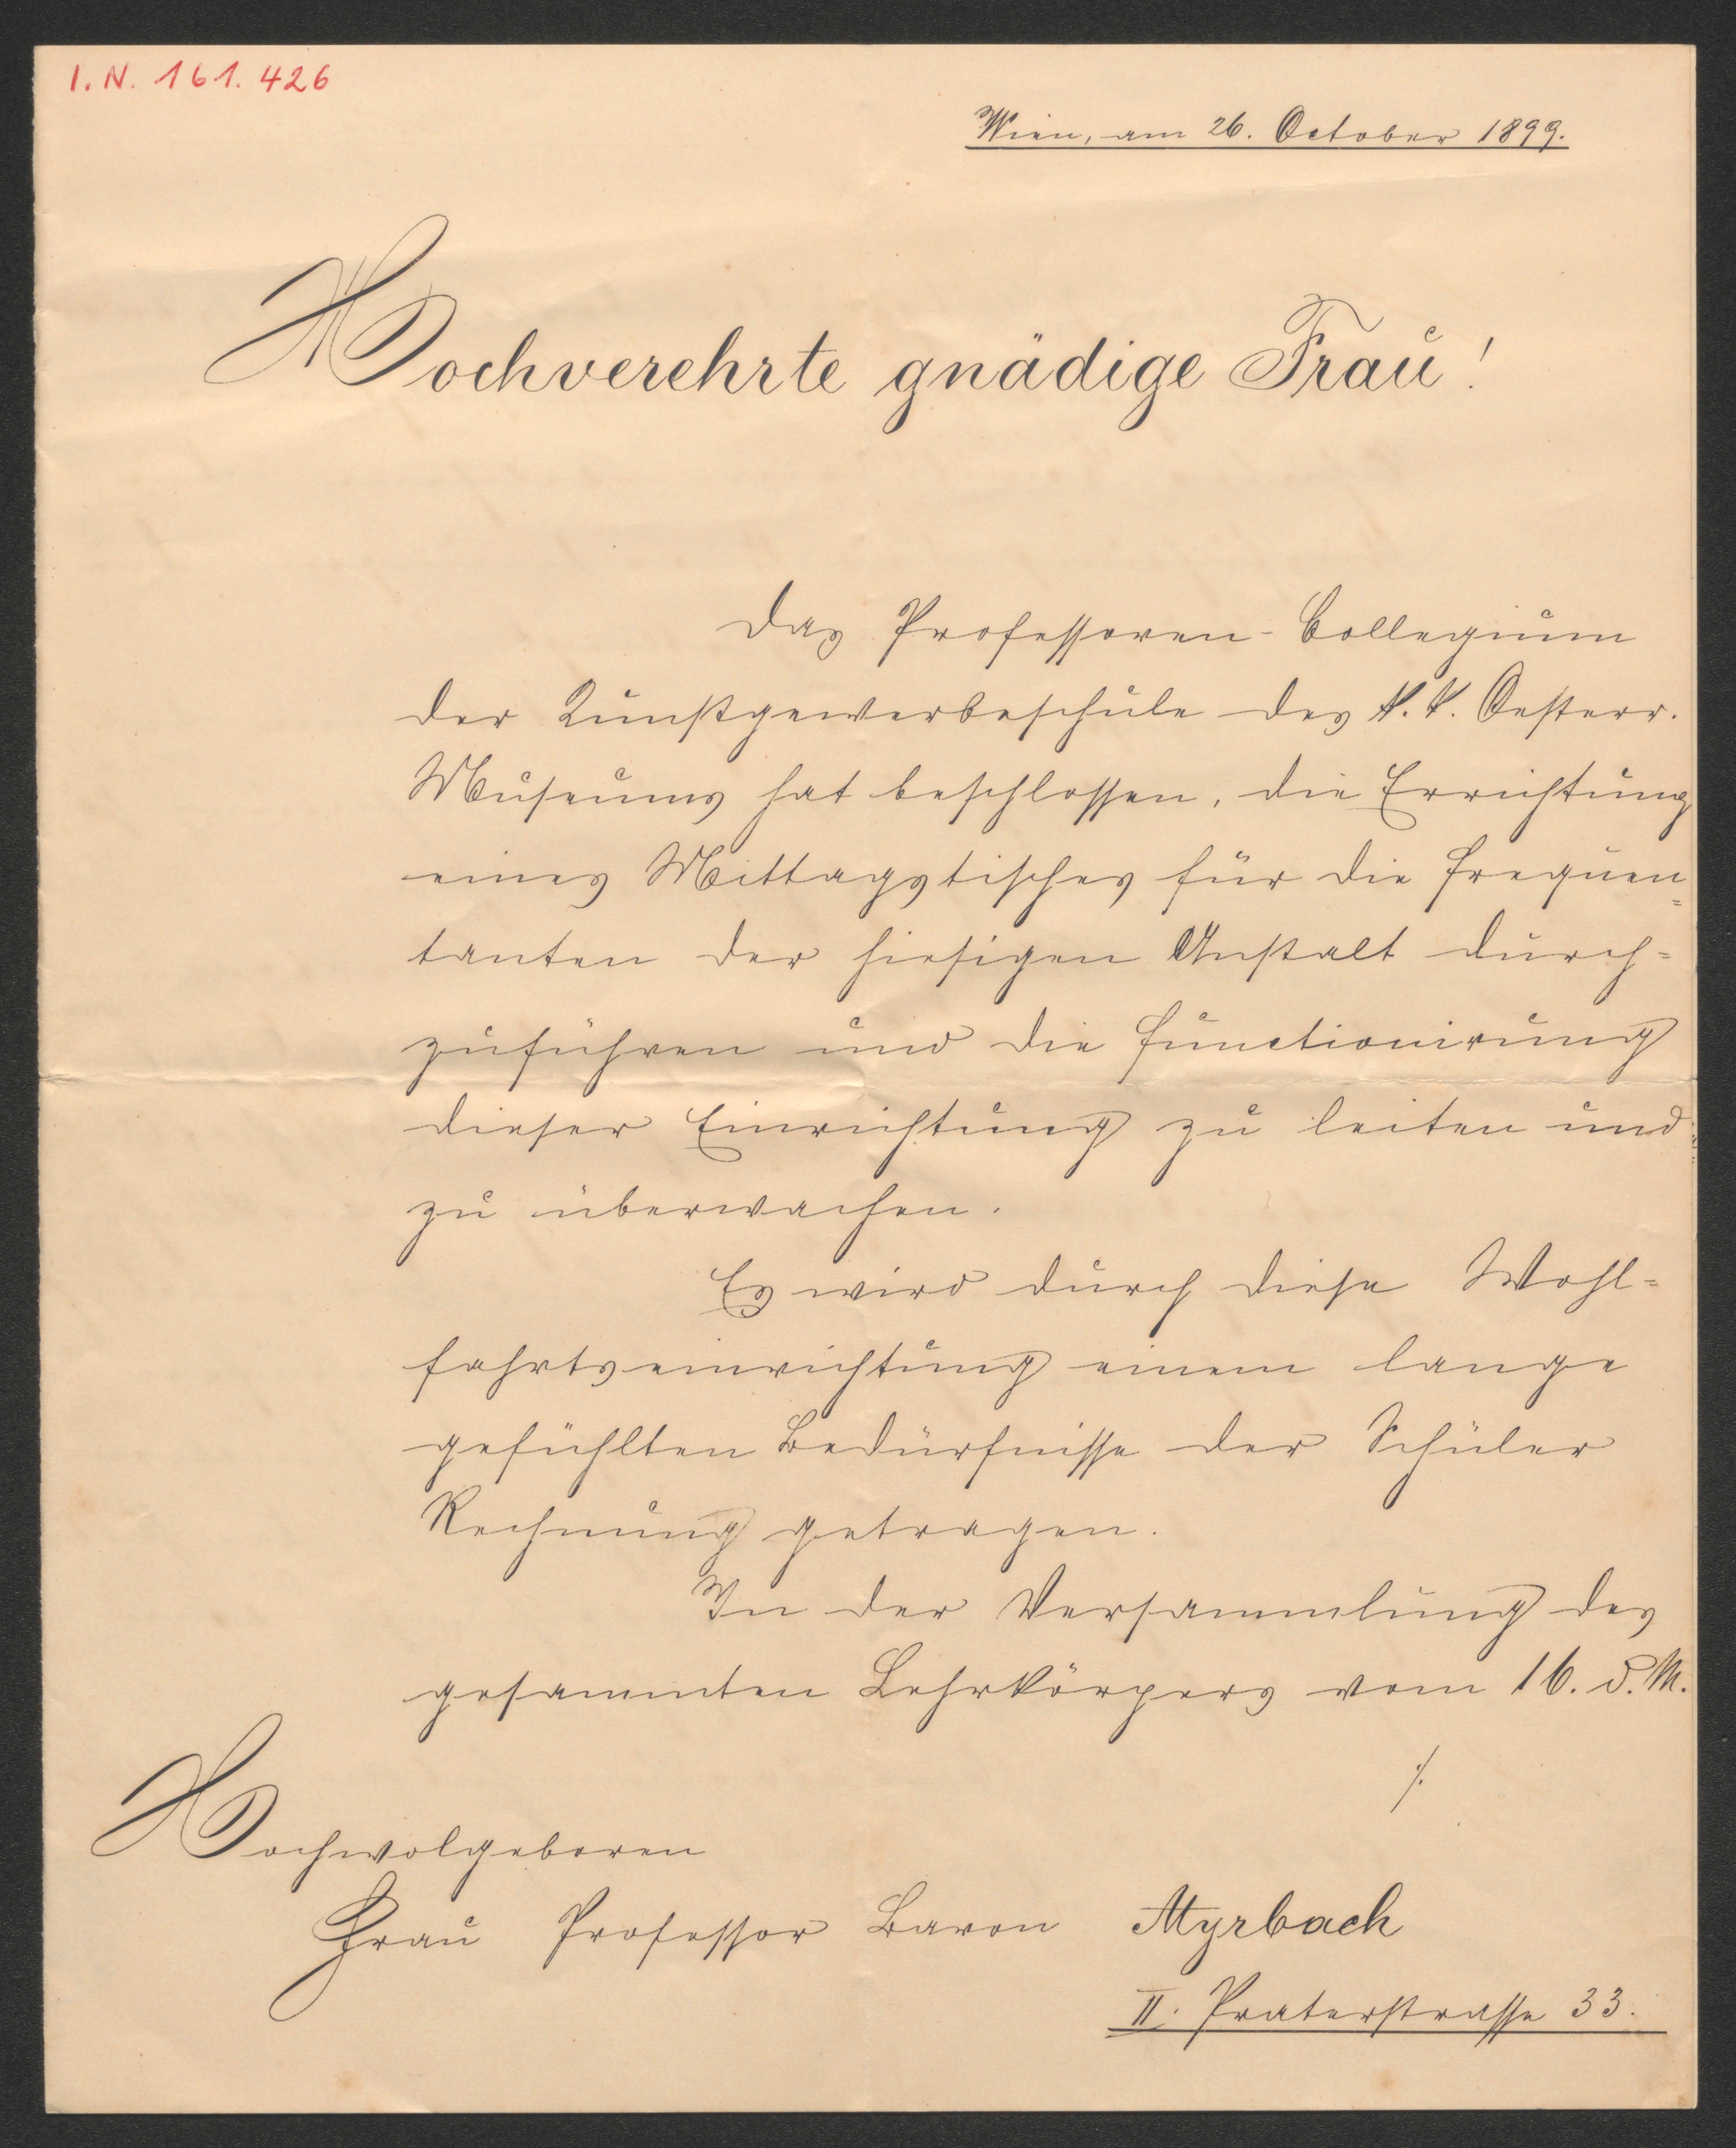 I. N. 161. 426
Wien, am 26. October 1899.
Hochverehrte gnädige Frau!
Das Professoren-Collegium
der Kunstgewerbeschule des k. k. Oesterr.
Museums hat beschlossen, die Errichtung
eines Mittagstisches für die Frequen=
tanten der hiesigen Anstalt durch=
zuführen und die Functionirung
dieser Einrichtung zu leiten und
zu überwachen.
Es wird durch diese Wohl=
fahrtseinrichtung einem lange
gefühlten Bedürfnisse der Schüler
Rechnung getragen.
In der Versammlung des
gesammten Lehrkörpers vom 16. d. M.
./.
Hochwolgeboren
Frau Professor Baron Myrbach
II. Praterstrasse 33.